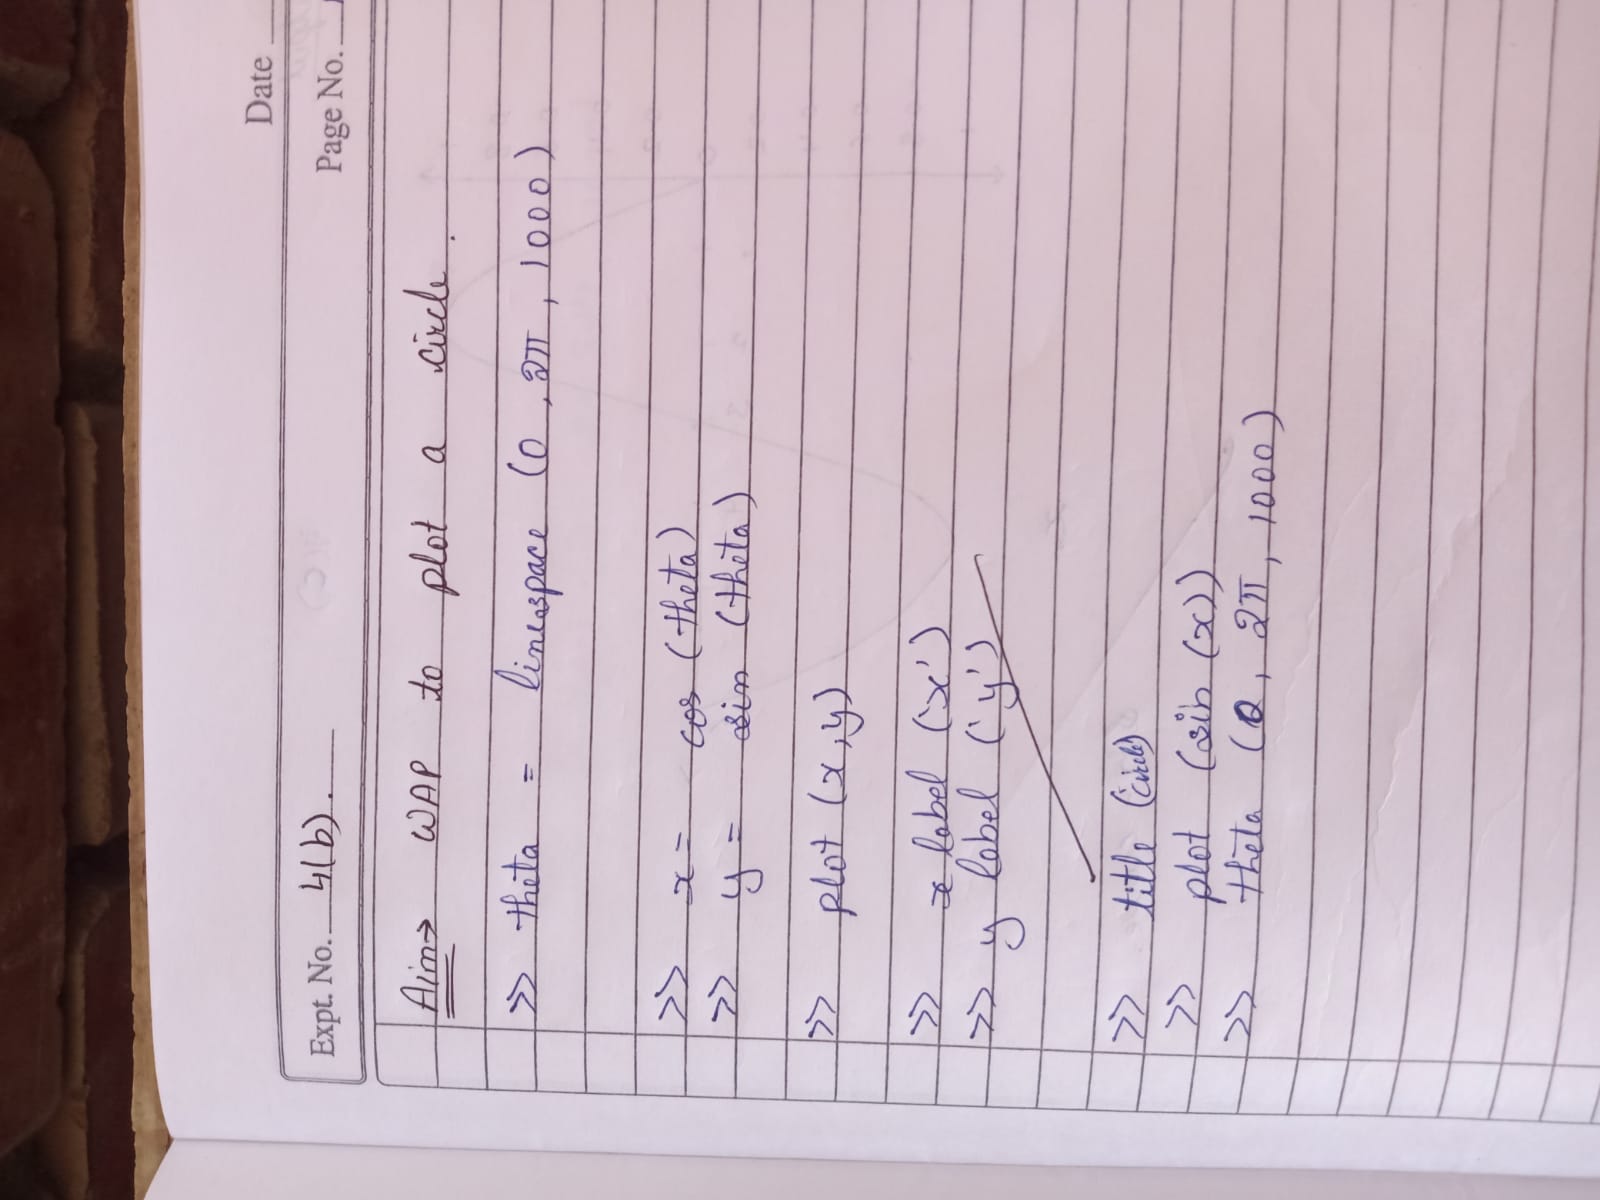 Date
Expt. No. 4(b).
Page No.
Aim→ WAP to plot a circle.
>> theta = linespace (0, 2π, 1000)
>> x = cos (theta)
>> y = sin (theta)
>> plot (x, y)
>> x label ('x')
>> y label ('y')
>> title (circle)
>> plot (sin (x))
>> theta (0, 2π, 1000)